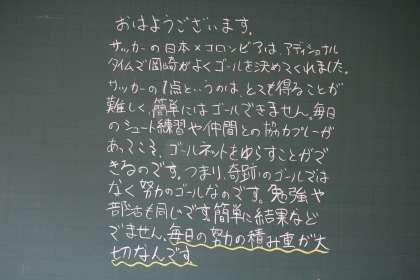 おはようございます。
サッカーの日本×コロンビアは、アディショナル
タイムで岡崎がよくゴールを決めてくれました。
サッカーの1点というのは、とても得ることが
難しく、簡単にはゴールできません。毎日
のシュート練習や仲間との協力プレーが
あってこそ、ゴールネットをゆらすことがで
きるのです。つまり、奇跡のゴールでは
なく努力のゴールなのです。勉強や
部活も同じです。簡単に結果など
でません。毎日の努力の積み重が大
切なんです